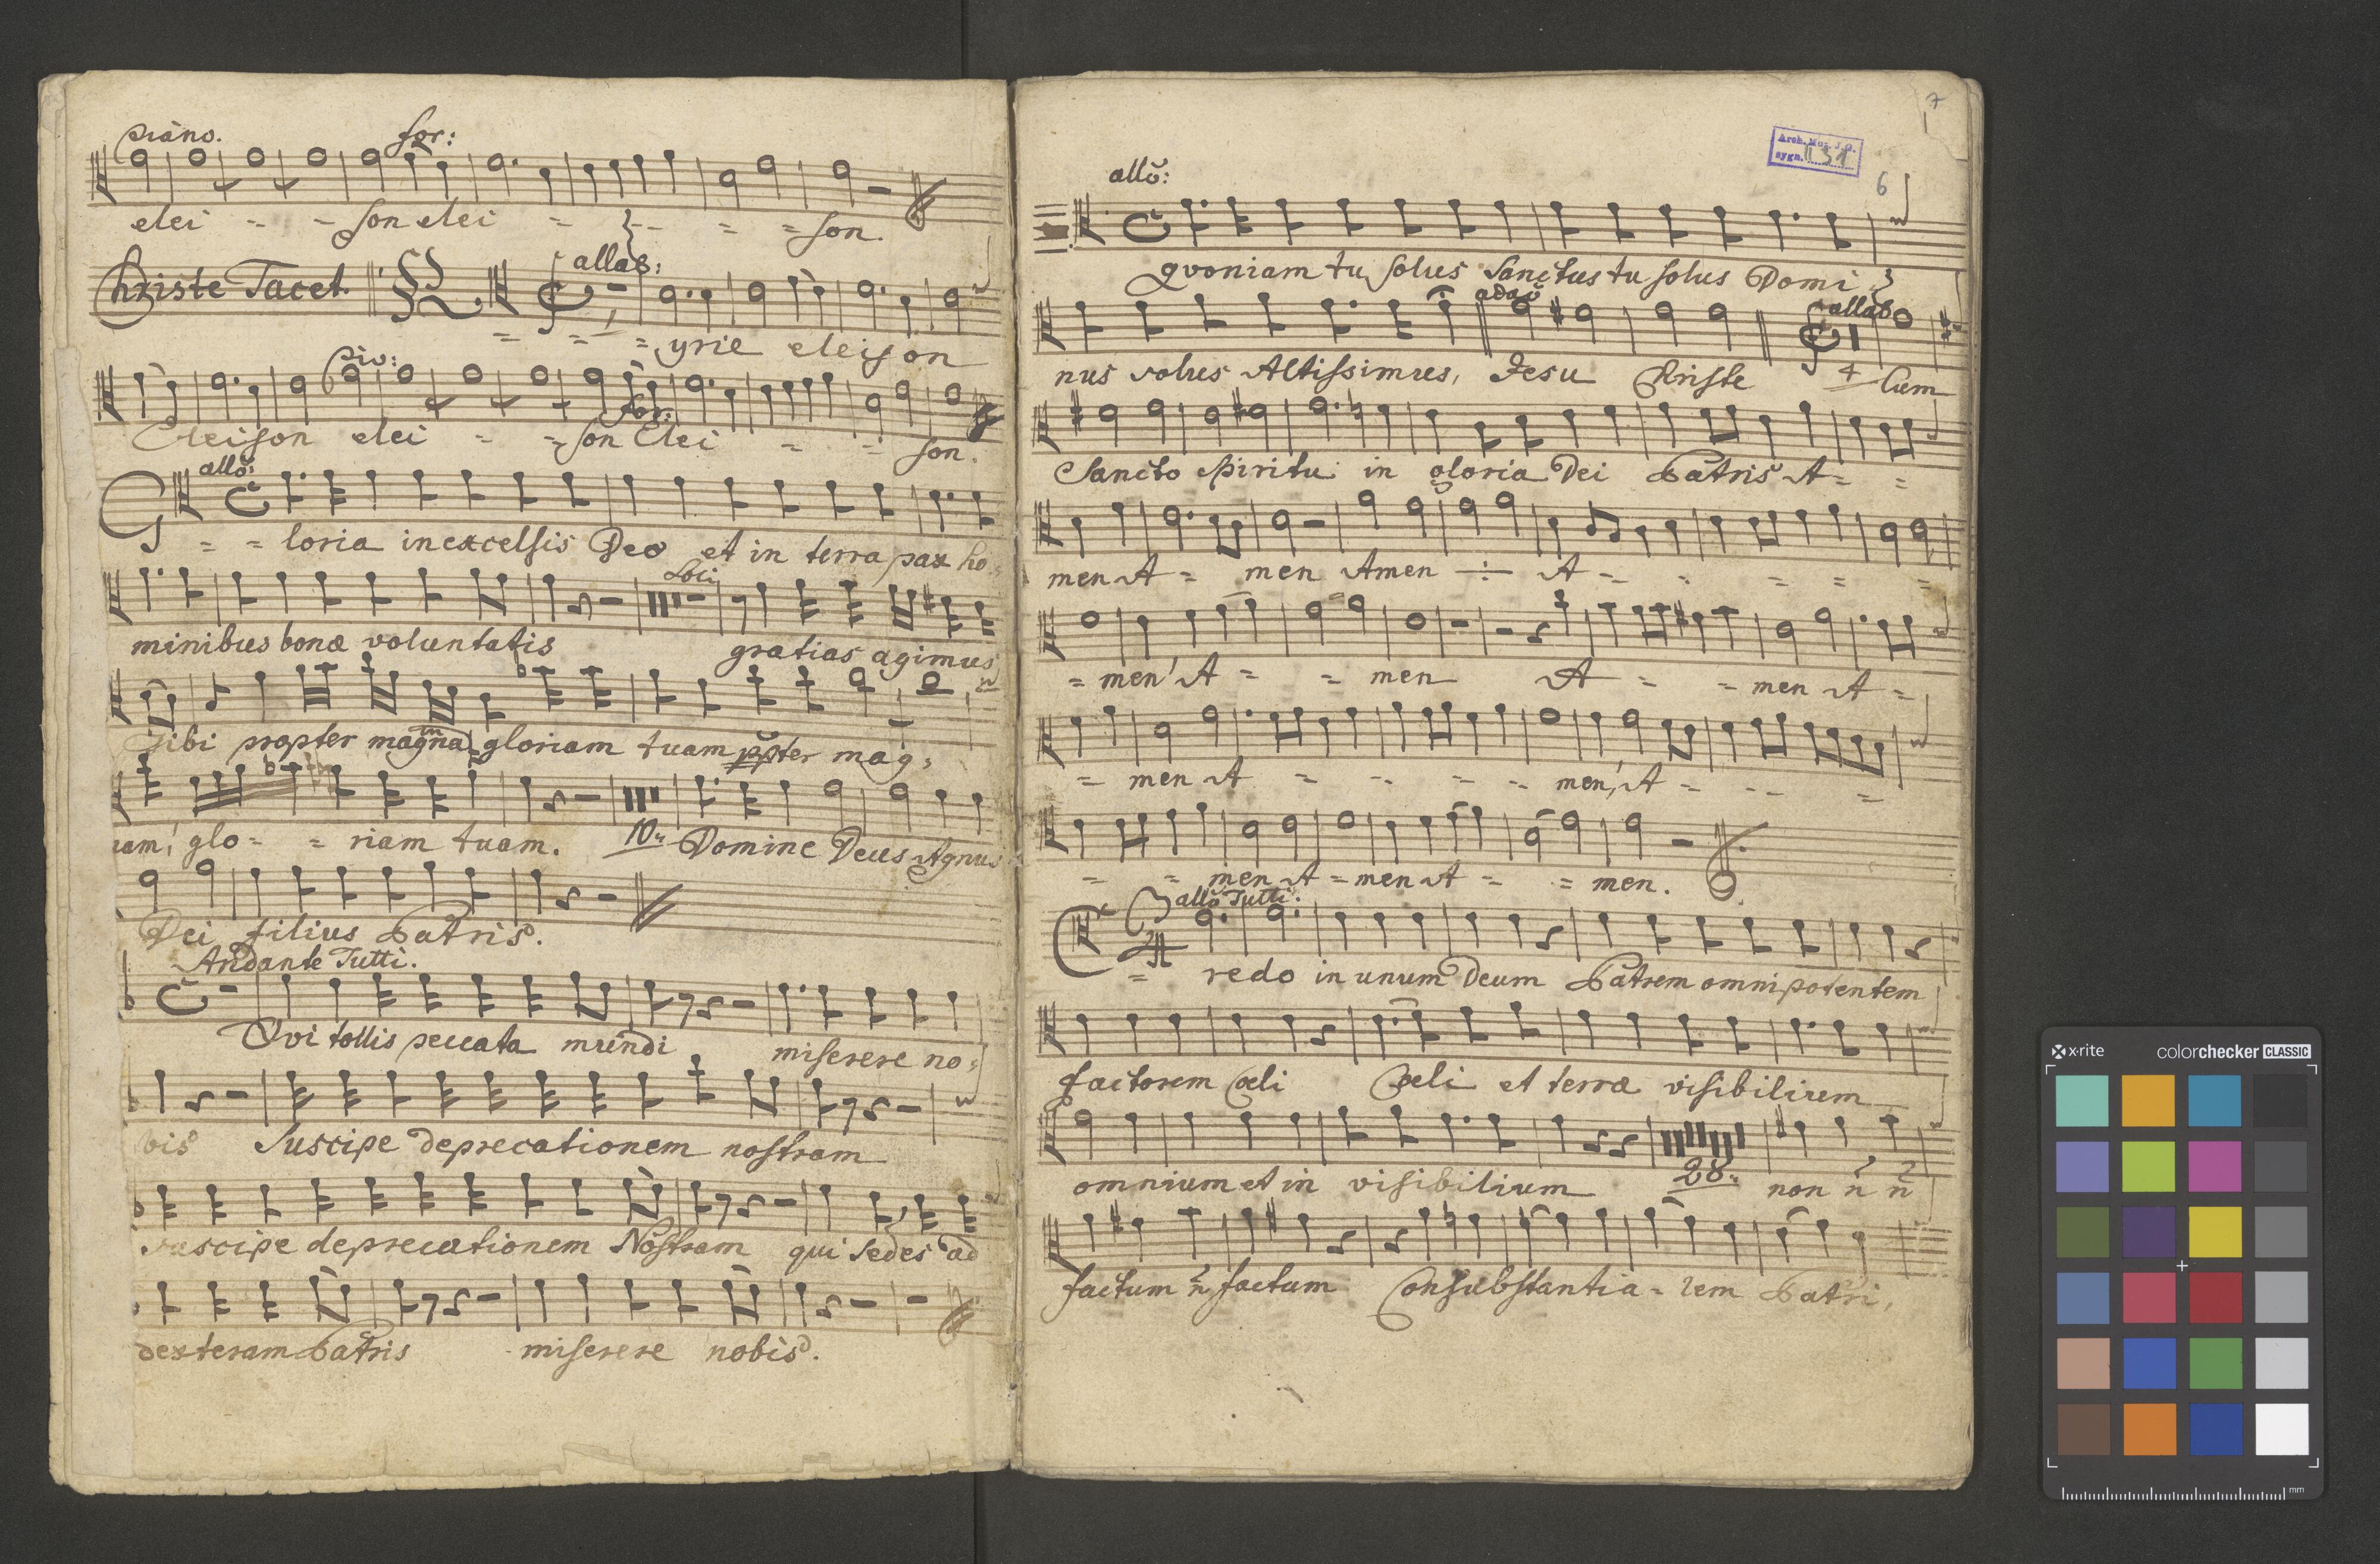 piano. for:
elei - - son elei - - - - son.
Christe Tacet. allab:
- - - yrie eleison
pio:
for:
Eleison elei - - son Elei - - son.
allo:
G - - loria in excelsis Deo et in terra pax ho-
Soli
minibus bonæ voluntatis gratias agimus
Tibi propter magna gloriam tuam ppter mag,
nam, glo - - riam tuam. 10 Domine Deus Agnus
Dei filius Patris.
Andante Tutti.
Qvi tollis peccata mundi miserere no-
bis Suscipe deprecationem nostram
Suscipe deprecationem Nostram qui sedes ad
dexteram Patris miserere nobis.
7
Arch. Mus. J.G.
sygn. II 31
6
allo:
qvoniam tu solus Sanctus tu solus Domi
adao allab
nus solus Altissimus, Jesu Xriste 4 Cum
Sancto Spiritu in gloria Dei Patris A - -
men A - men Amen ÷ A - - - - -
- men A - - men A - - men A -
- men A - - - - men, A - - -
- - men A - men A - - men.
allo Tutti:
C - redo in unum Deum Patrem omnipotentem
factorem Cœli Cœli et terræ visibilium
omnium et in visibilium 28 non ñ ñ
factum ñ factum Consubstantia - lem Patri,
x·rite colorchecker CLASSIC
mm